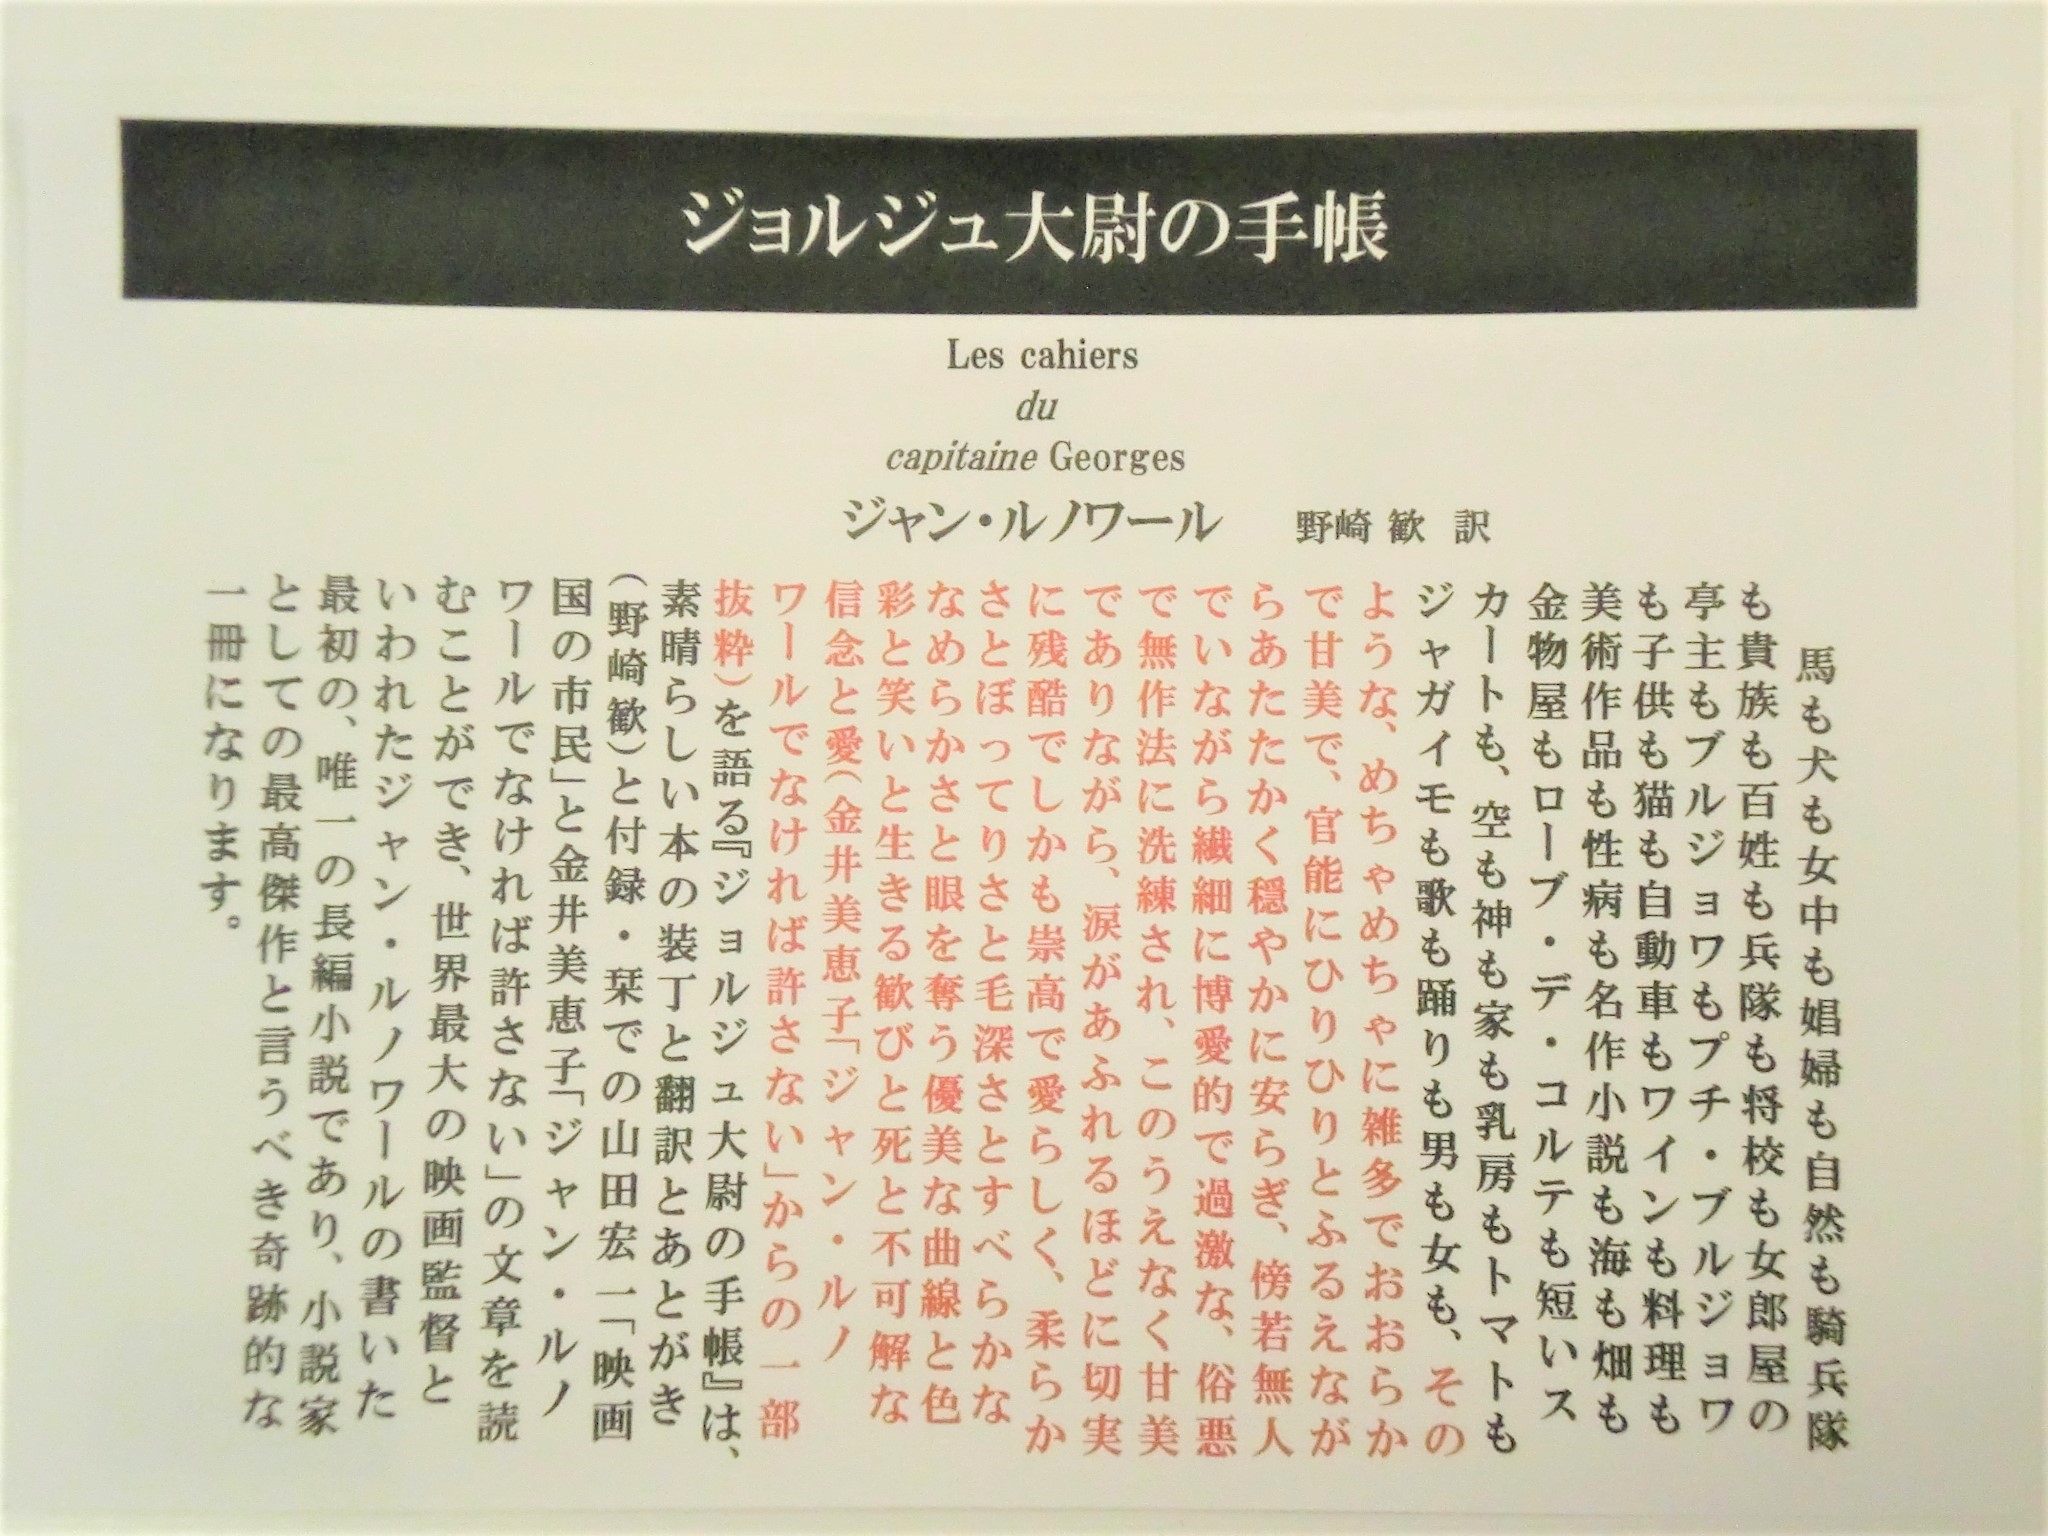 ジョルジュ大尉の手帳
Les cahiers
du
capitaine Georges
ジャン・ルノワール　野崎 歓 訳
馬も犬も女中も娼婦も自然も騎兵隊
も貴族も百姓も兵隊も将校も女郎屋の
亭主もブルジョワもプチ・ブルジョワ
も子供も猫も自動車もワインも料理も
美術作品も性病も名作小説も海も畑も
金物屋もローブ・デ・コルテも短いス
カートも、空も神も家も乳房もトマトも
ジャガイモも歌も踊りも男も女も、その
ような、めちゃめちゃに雑多でおおらか
で甘美で、官能にひりひりとふるえなが
らあたたかく穏やかに安らぎ、傍若無人
でいながら繊細に博愛的で過激な、俗悪
で無作法に洗練され、このうえなく甘美
でありながら、涙があふれるほどに切実
に残酷でしかも崇高で愛らしく、柔らか
さとぼってりさと毛深さとすべらかな
なめらかさと眼を奪う優美な曲線と色
彩と笑いと生きる歓びと死と不可解な
信念と愛(金井美恵子「ジャン・ルノ
ワールでなければ許さない」からの一部
抜粋)を語る『ジョルジュ大尉の手帳』は、
素晴らしい本の装丁と翻訳とあとがき
(野崎歓)と付録・栞での山田宏一「映画
国の市民」と金井美恵子「ジャン・ルノ
ワールでなければ許さない」の文章を読
むことができ、世界最大の映画監督と
いわれたジャン・ルノワールの書いた
最初の、唯一の長編小説であり、小説家
としての最高傑作と言うべき奇跡的な
一冊になります。